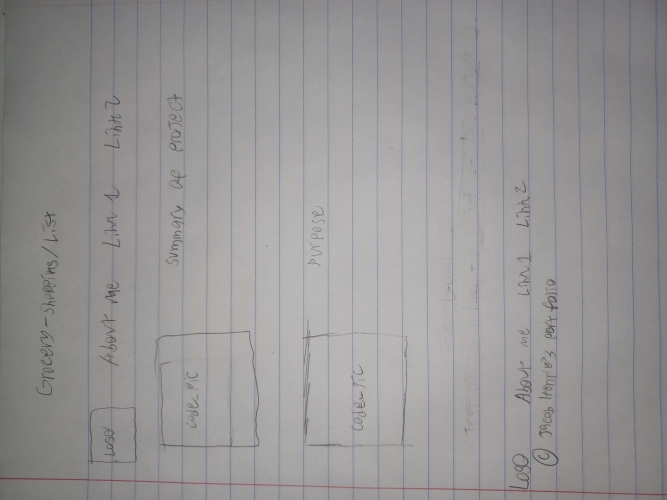 Grocery-shopping/List
LOGO About me Link 1 Link 2
code_pic summary of project
code_pic purpose
LOGO About me Link 1 Link 2
© Jacob Henrie's portfolio